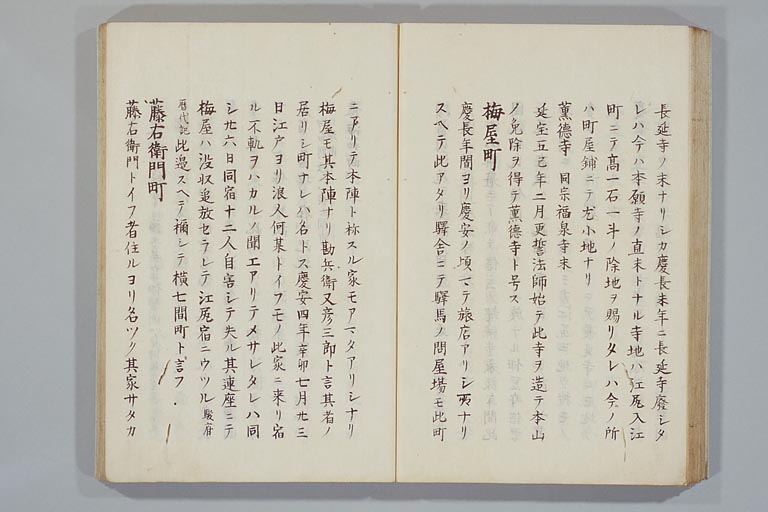 長延寺ノ末ナリシカ慶長末年ニ長延寺廢シタ
レハ今ハ本願寺ノ直末トナル寺地ハ江尻入江
町ニテ高一石一斗ノ除地ヲ賜リタレハ今ノ所
ハ町屋鋪ニテ尤小地ナリ
薫德寺ニ同宗福泉寺末
延宝五己年二月更誓法師始テ此寺ヲ造テ本山
ノ免除ヲ得テ薫德寺ト号ス
梅屋町
慶長年間ヨリ慶安ノ頃マテ旅店アリシ所ナリ
スヘテ此アタリ驛舎ニテ驛馬ノ問屋場モ此町
ニアリテ本陣ト称スル家モアマタアリシナリ
梅屋モ其本陣ナリ勘兵衛又彦三郎ト言其者ノ
居リシ町ナレハ名トス慶安四年辛卯七月廿三
日江戸ヨリ浪人何某トイフモノ此家ニ来リ宿
ル不軌ヲハカルノ聞エアリテメサレタレハ同
シ廿六日同宿十二人自害シテ失ル其連座ニテ
梅屋ハ没収追放セラレテ江尻宿ニウツル駿府
歴代記此邉スヘテ稱シテ横七間町ト言フ
藤右衛門町
藤右衛門トイフ者住ルヨリ名ツク其家サタカ